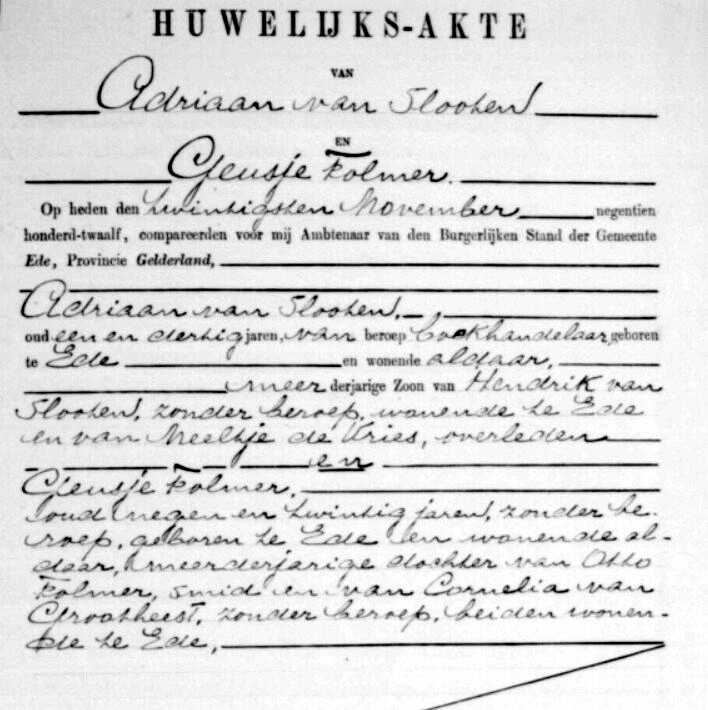 HUWELIJKS-AKTE
VAN
Adriaan van Slooten
EN
Geusje Folmer.
Op heden den twintigsten November negentien
honderd-twaalf, compareerden voor mij Ambtenaar van den Burgerlijken Stand der Gemeente
Ede, Provincie Gelderland,
Adriaan van Slooten,
oud een en dertig jaren, van beroep boekhandelaar, geboren
te Ede en wonende aldaar,
meer derjarige Zoon van Hendrik van
Slooten, zonder beroep, wonende te Ede
en van Neeltje de Kries, overleden
en
Geusje Folmer,
oud negen en twintig jaren, zonder be-
roep, geboren te Ede en wonende al-
daar, meerderjarige dochter van Otto
Folmer, smid en van Cornelia van
Grootheest, zonder beroep, beiden wonen-
de te Ede,